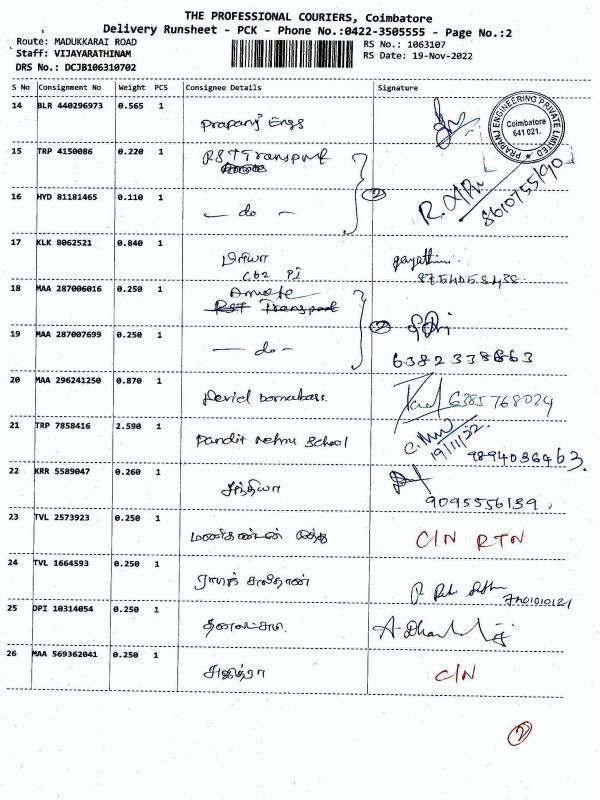 THE PROFESSIONAL COURIERS, Coimbatore
Delivery Runsheet - PCK - Phone No.:0422-3505555 - Page No.:2
Route: MADUKKARAI ROAD
RS No.: 1063107
Staff: VIJAYARATHINAM
RS Date: 19-Nov-2022
DRS No.: DCJB106310702
S No Consignment No Weight PCS Consignee Details Signature
14 BLR 440296973 0.565 1 Prapanj Engs
PRAPANJ ENGINEERING PRIVATE LIMITED
Coimbatore
641 021.
15 TRP 4150086 0.220 1 RST Transport
16 HYD 81181465 0.110 1 — do — 2
8610755690
17 KLK 8062521 0.840 1 பிரியா gayathri
CB2 PJ 8754058438
18 MAA 287006016 0.250 1
RST Transport
19 MAA 287007699 0.250 1 — do — 2
6382338863
20 MAA 296241250 0.870 1 David 6385768024
21 TRP 7858416 2.590 1 Pandit Nehru School 19/11/22 9894036463.
22 KRR 5589047 0.260 1 சந்தியா 9095556139,
23 TVL 2573923 0.250 1 மணிகண்டன் C/N RTN
24 TVL 1664593 0.250 1
25 DPI 10314054 0.250 1
26 MAA 569362041 0.250 1 C/N
2